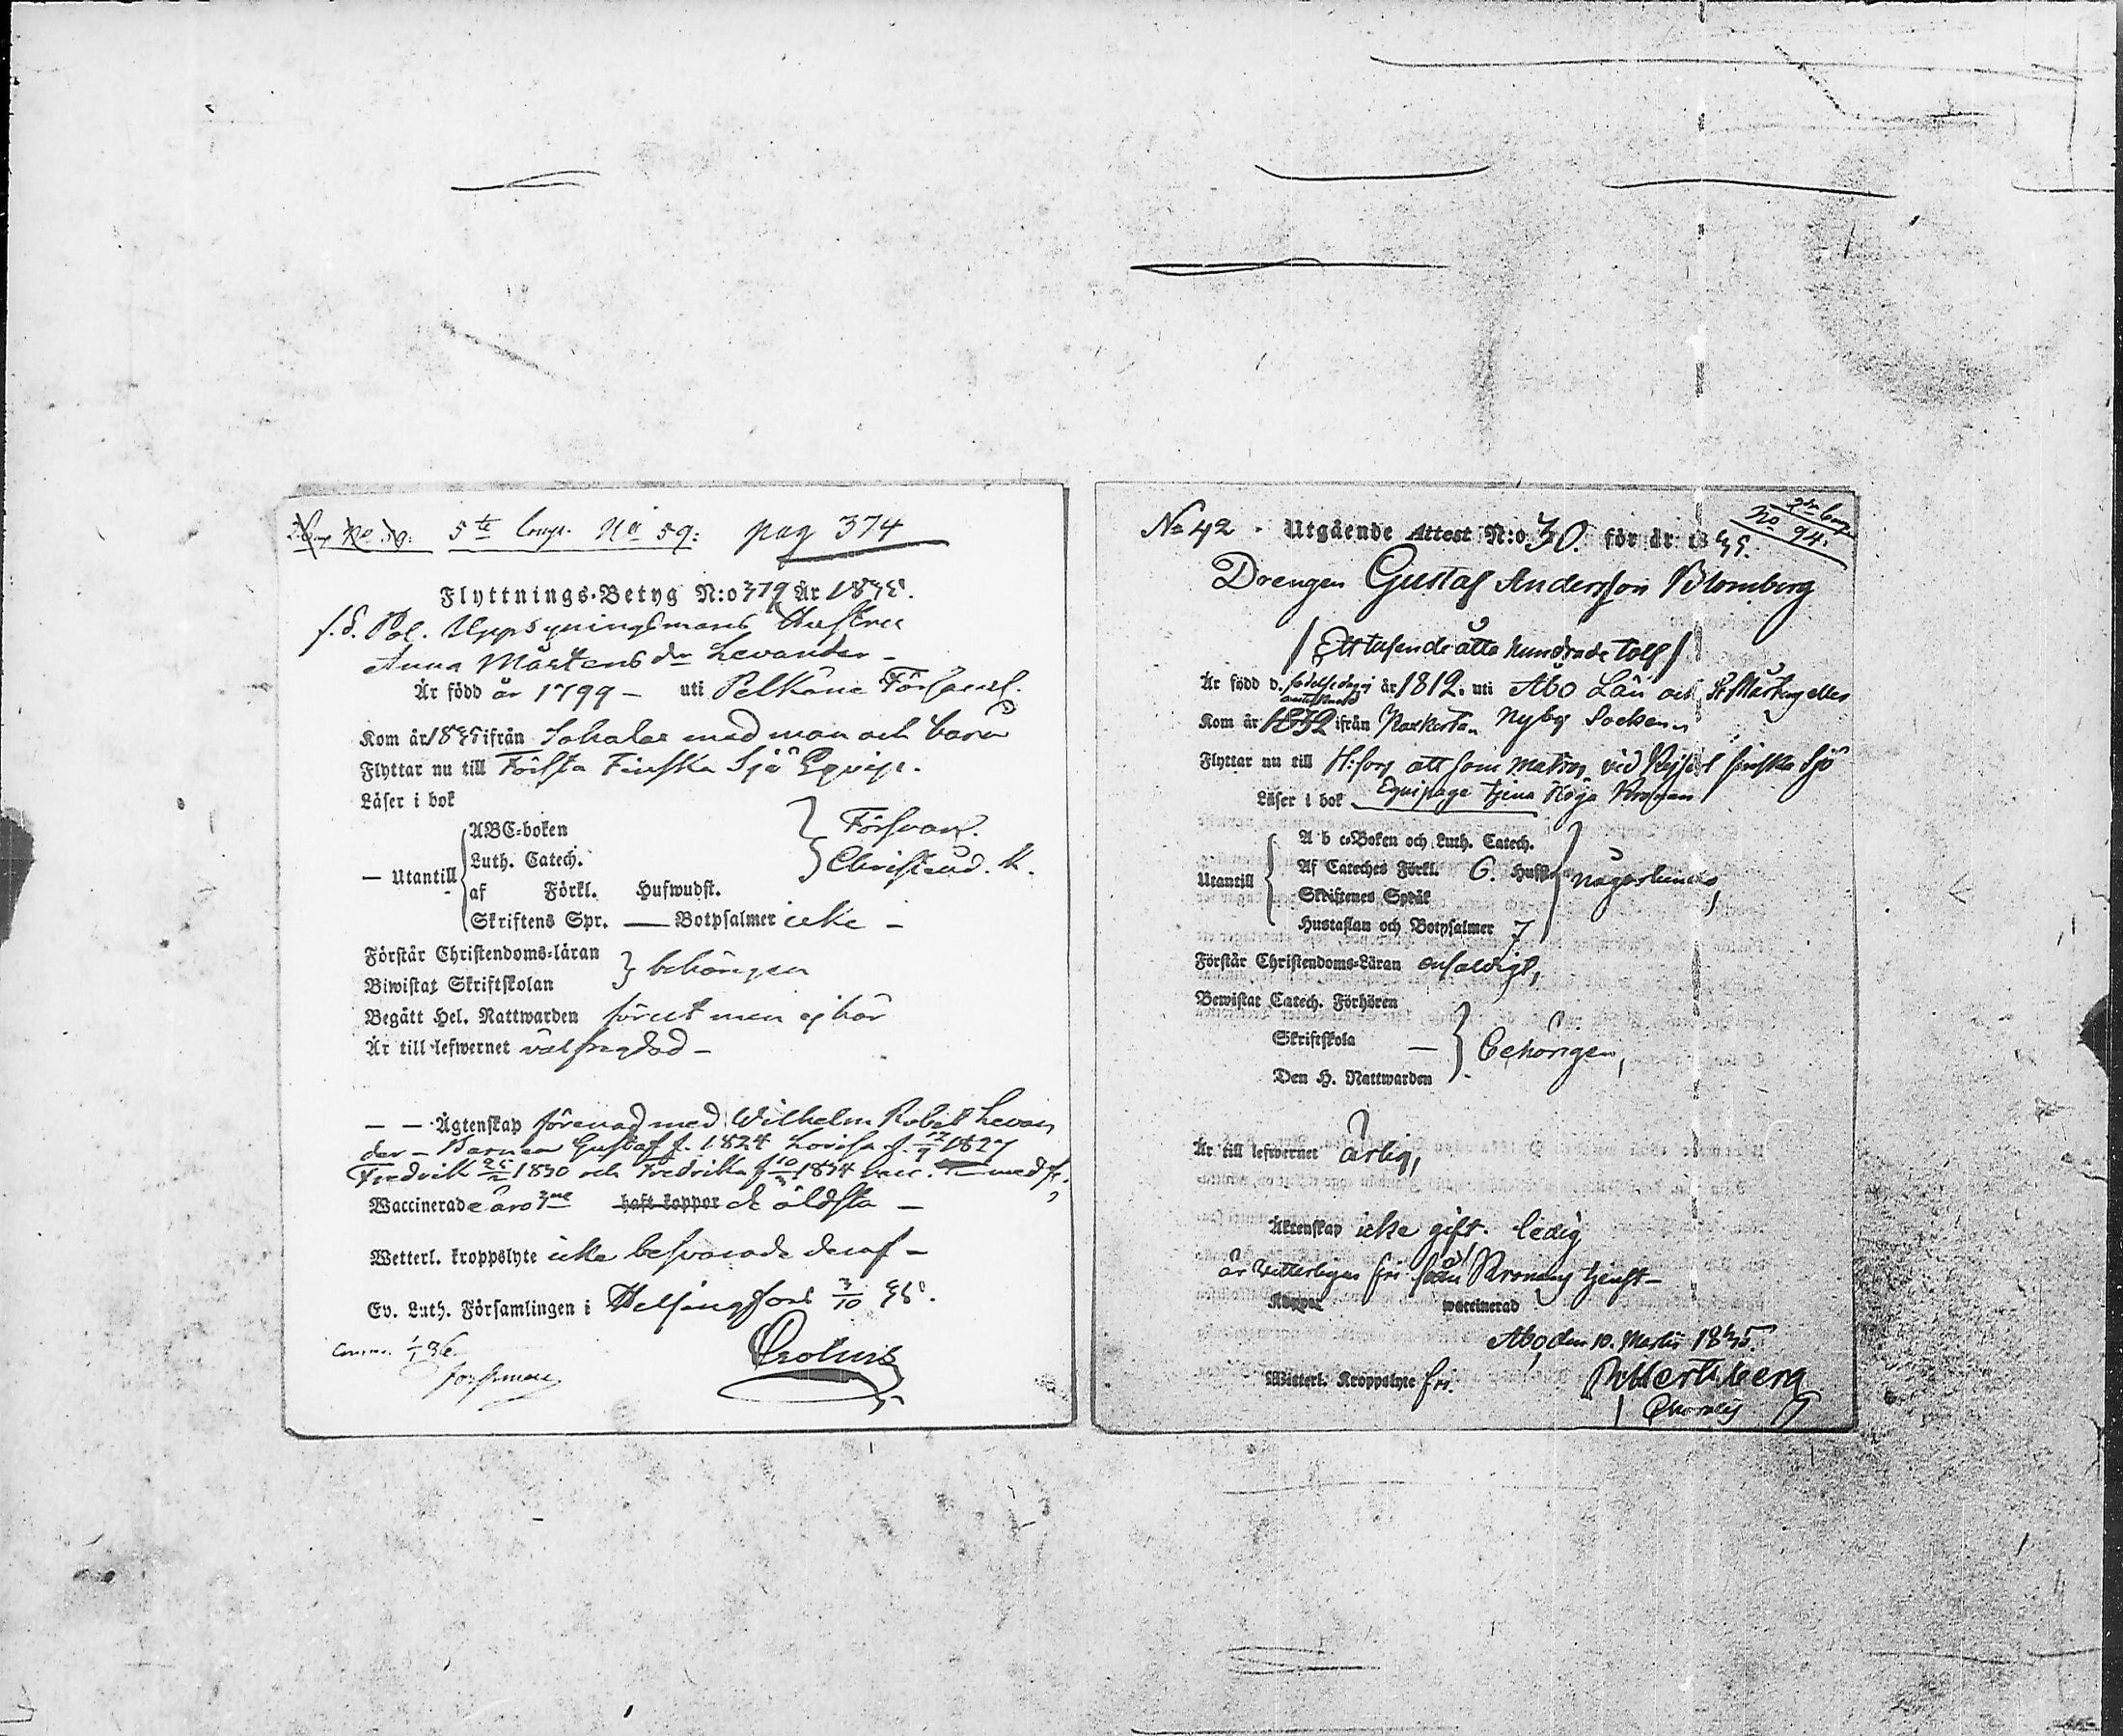 5te Comp. No 59: pag 374
Flyttnings-Betyg N:o 379 År 1835.
f. d. Pol. Uppsyningsmans Hustru
Anna Mårtens dr Levander –
Är född år 1799 – uti Pelkäne Församl.
Kom år 1835 ifrån med man och barn
Flyttar nu till Första Finska Sjö Equip.
Läser i bok
– Utantill
ABC-boken
Luth. Catech.
af Förkl. Hufwudst.
Skriftens Spr. — Botpsalmer icke –
Försvarl.
Christend. K.
Förstår Christendoms-läran
Biwistat Skriftskolan
behörigen
Begått Hel. Nattwarden förut men ej här
Är till lefwernet välfrejdad –
– – Ägtenskap förenad med Wilhelm Robert Levan
der – Barnen Gustaf f. 1824 Lovisa f. 1827
Fredrik 1830 och Fredrika 1834
Waccinerade äro 3ne haft koppor de äldsta –
Wetterl. kroppslyte icke besvärade deraf –
Ev. Luth. Församlingen i Helsingfors 3/10 35.
Crolus
No 42. Utgående Attest N:o 30. för år 1835.
No 94.
Drengen Gustaf Andersson Blomberg
/ Ett tusende åtta hundrade tolf /
Är född d. år 1812. uti Åbo Län och St Mårtens
Kom år 1832 ifrån Nyby Socken
Flyttar nu till H:fors att som matros vid Finska Sjö
Läser i bok Equipage tjena Höga Kronan
Utantill
A b c-Boken och Luth. Catech.
Af Cateches Förkl. 6. Hufst
Skriftenes Språk
Hustaflan och Botpsalmer 7
någorlunda,
Förstår Christendoms-Läran enfaldigt,
Bewistat Catech. Förhören
Skriftskola –
Den H. Nattwarden
behörigen,
Är till lefwernet ärlig,
Äktenskap icke gift. ledig
är vetterligen fri från Kronans tjenst –
Koppor waccinerad
Åbo, den 10. Martii 1835.
Witterl. Kroppslyte fri.